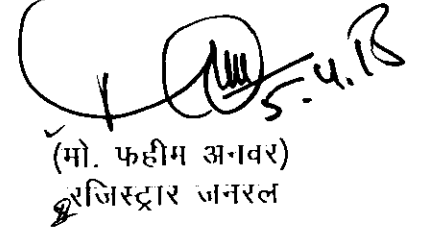 5.4.18
(मो. फहीम अनवर)
रजिस्ट्रार जनरल